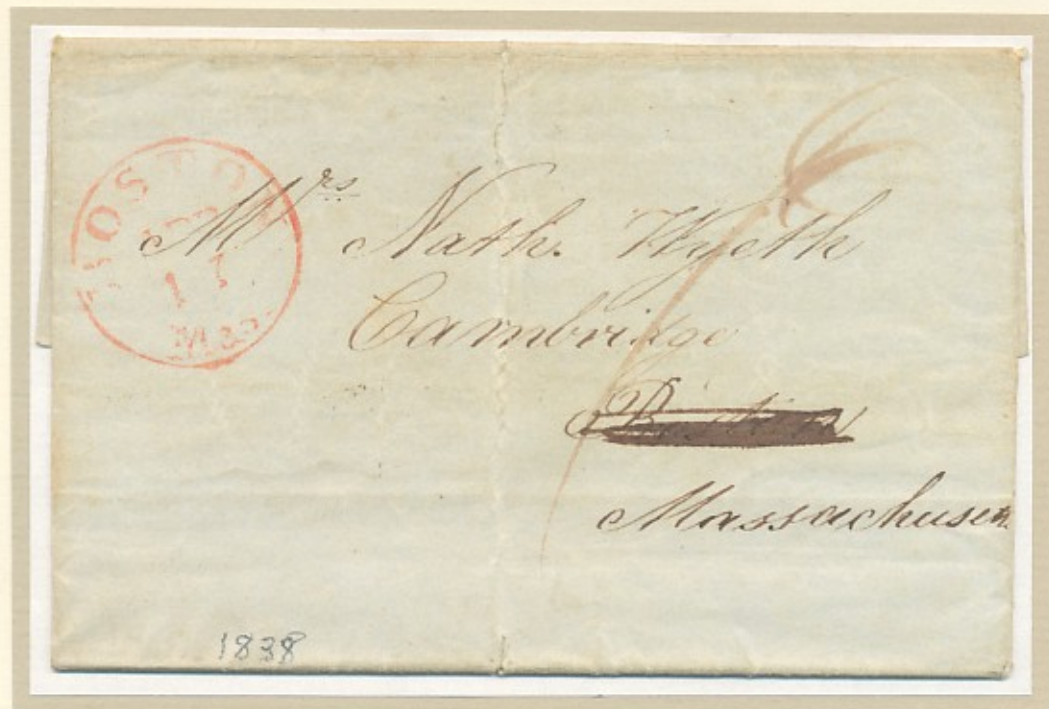 BOSTON
17
MAS
Mrs Nath. Wyeth
Cambridge
Boston
Massachusetts
1838